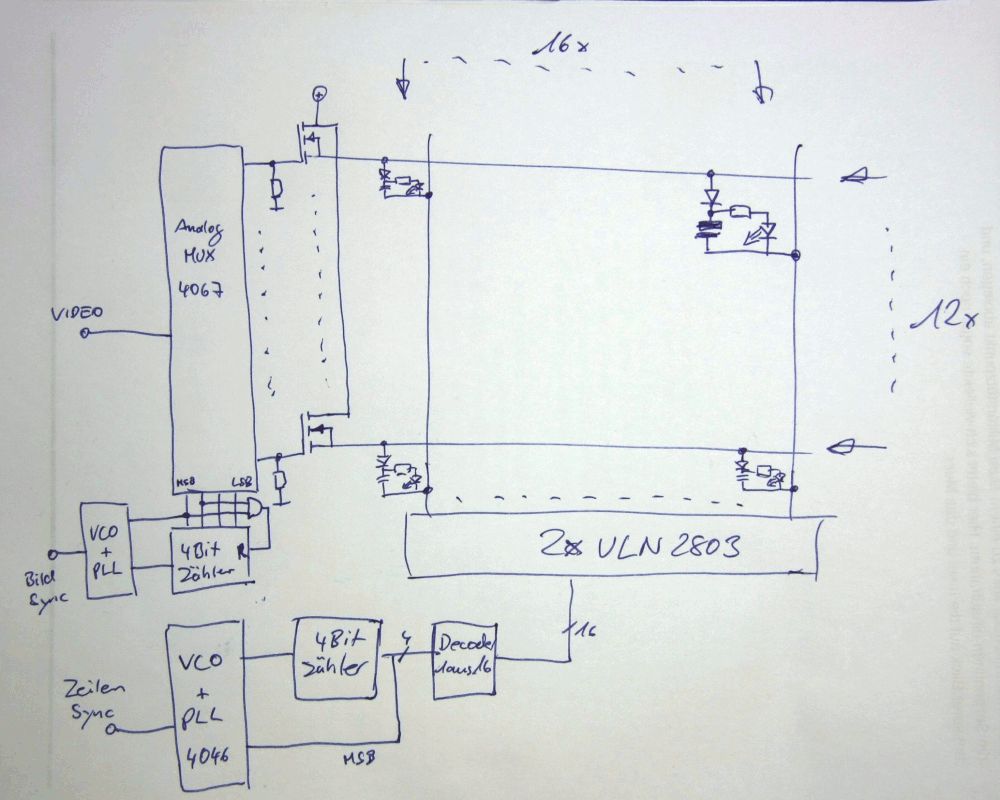 16x
Analog
MUX
4067
VIDEO
12x
MSB LSB
VCO
+
PLL
4Bit
Zähler
R
Bild
Sync
2x ULN 2803
16
VCO
+
PLL
4046
4Bit
Zähler
4
Decoder
1aus16
Zeilen
Sync
MSB